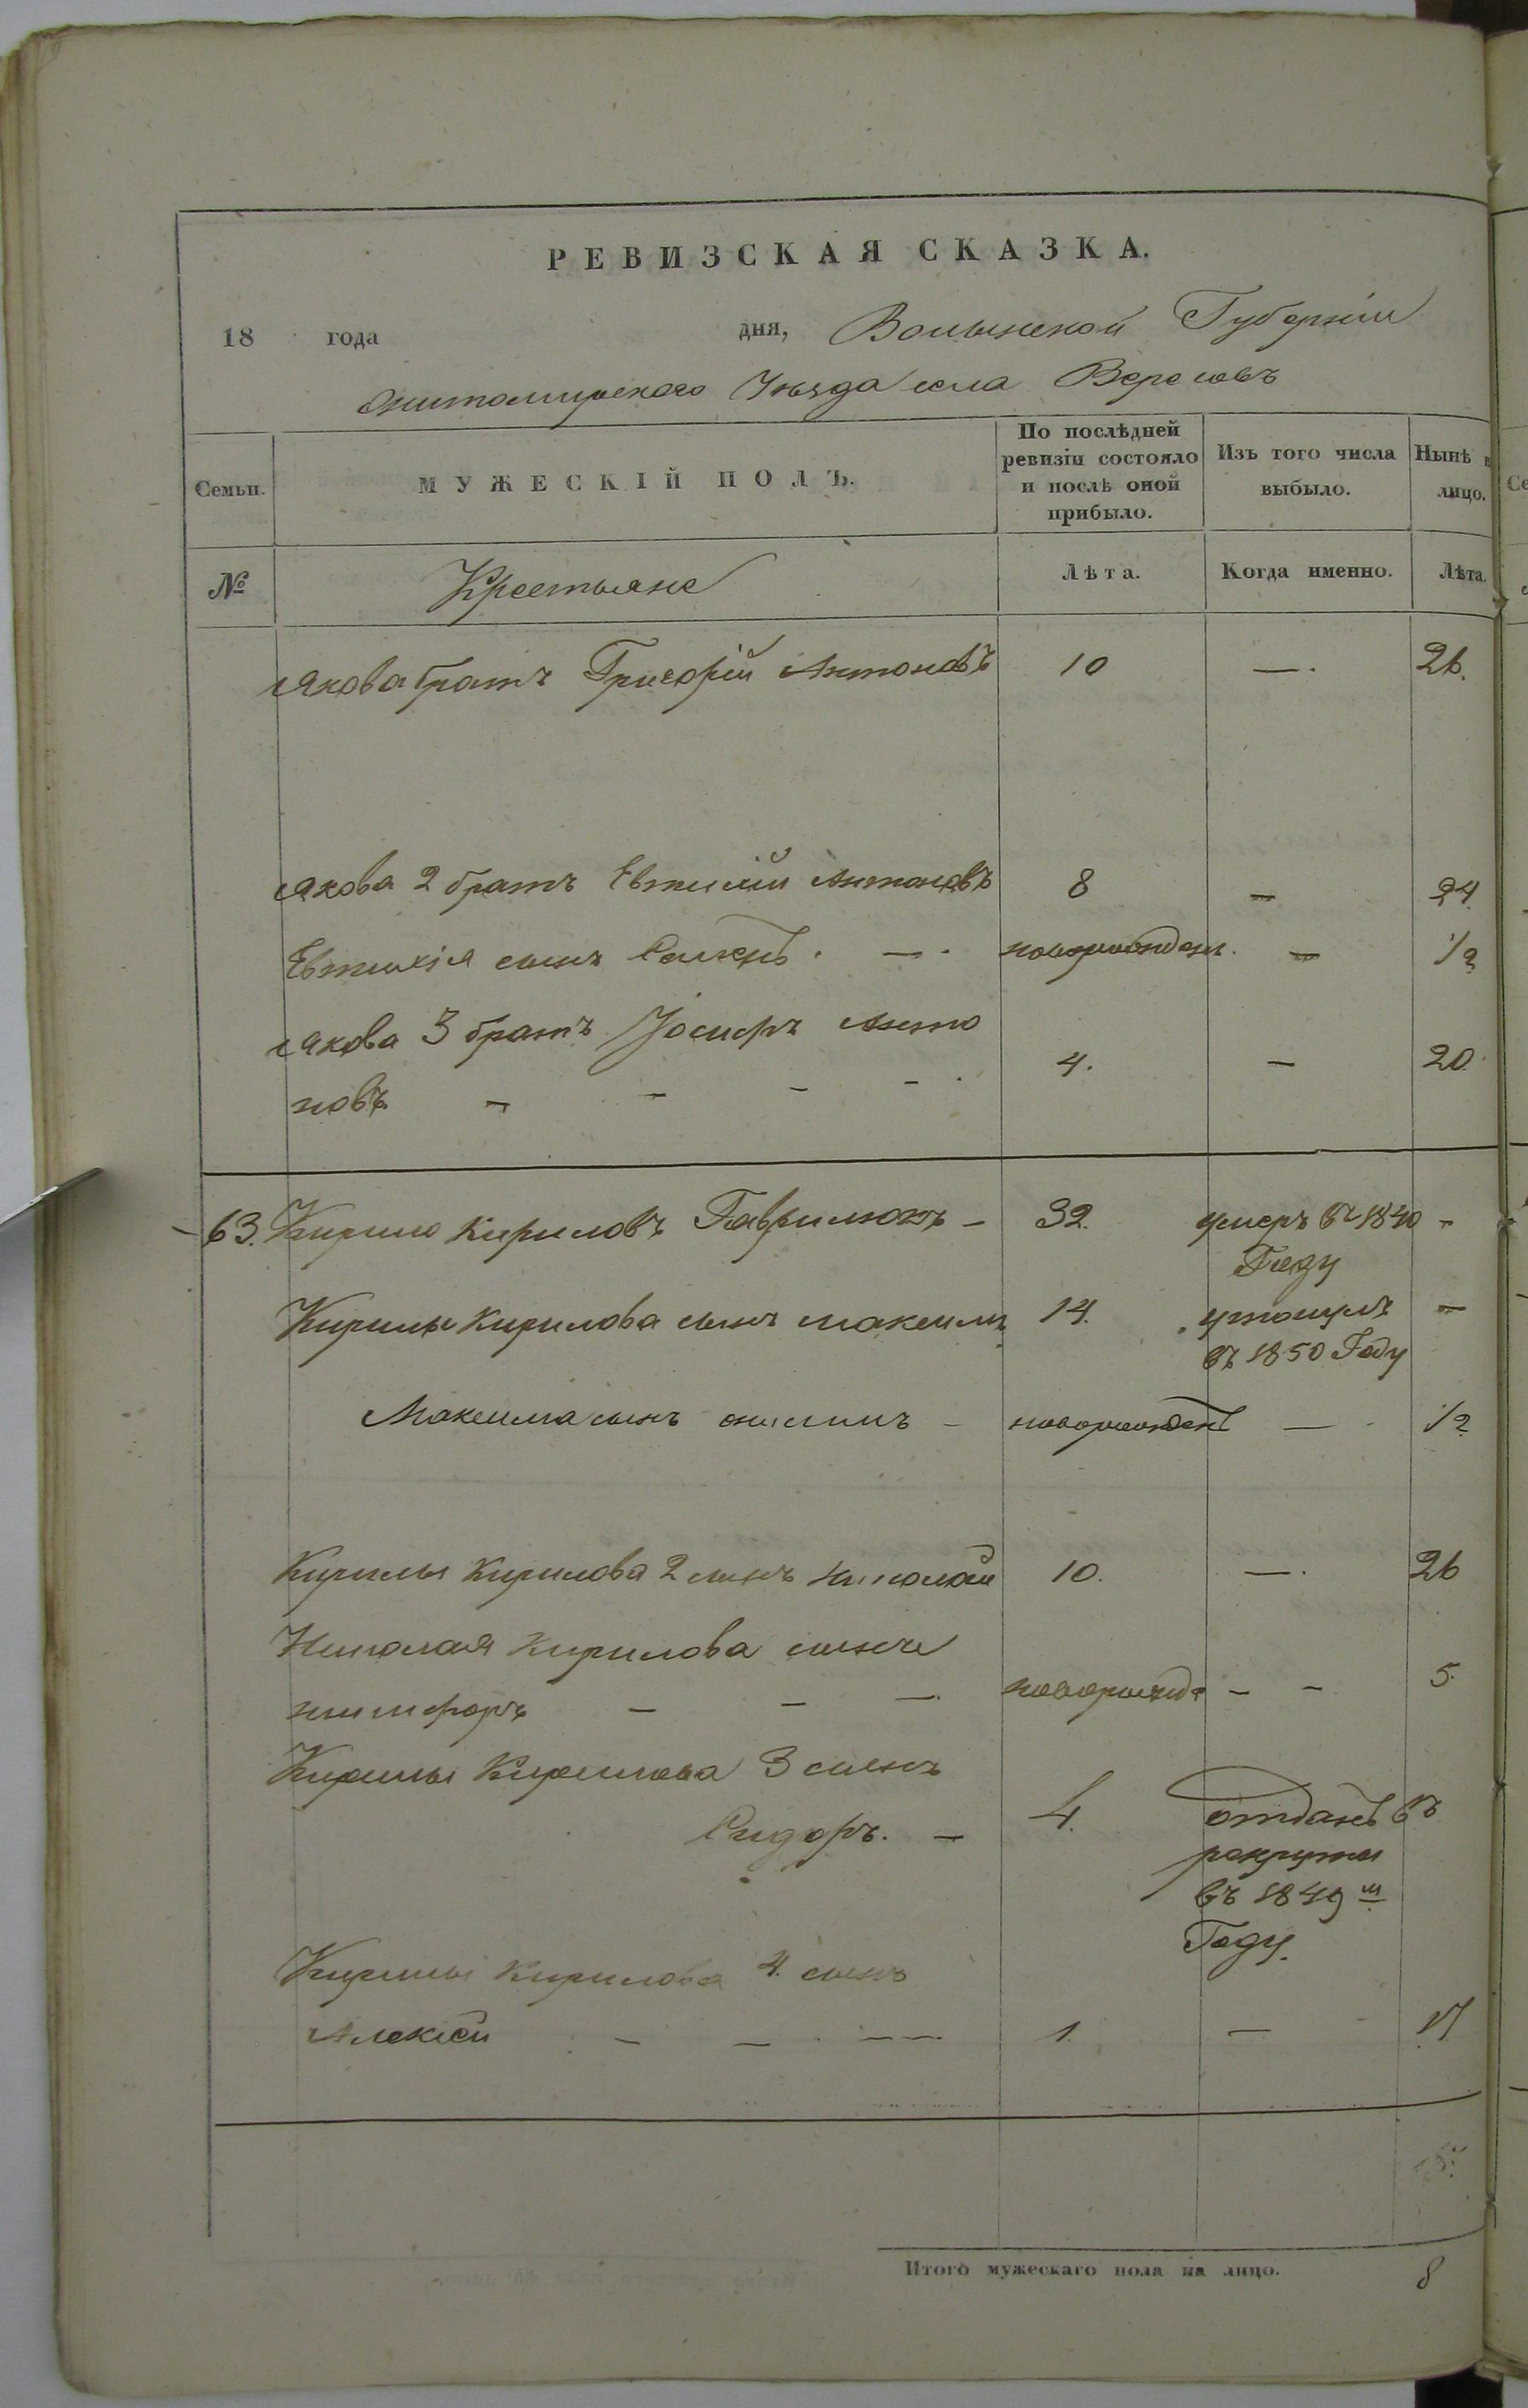 РЕВИЗСКАЯ СКАЗКА.
18 года дня, Волынской Губерніи
Житомирскаго Уѣзда села Вересовъ
Семьи. МУЖЕСКІЙ ПОЛЪ. По послѣдней ревизіи состояло и послѣ оной прибыло. Изъ того числа выбыло. Нынѣ в лицо.
№ Крестьяне Лѣта. Когда именно. Лѣта.
Якова братъ Григорій Антоновъ 10 — 26.
Якова 2 братъ Евтихій Антоновъ 8 — 24.
Евтихія сынъ новорожден. — 1/2
Якова 3 братъ Іосифъ Анто
новъ 4. — 20.
63. Кирило Кириловъ Гаврилюкъ — 32. умеръ въ 1840 -
Году
Кирилы Кирилова сынъ Максимъ 14. утонулъ —
въ 1850 Году
Максима сынъ — новорожденъ — 1/2
Кирилы Кирилова 2 сынъ Николай 10. — 26
Николая Кирилова сынъ
никифоръ — — — новорожд - - 5.
Кирилы Кирилова 3 сынъ
Сидоръ. — 4. отданъ въ
рекруты
въ 1849 м
Году.
Кирилы Кирилова 4. сынъ
Алексѣй — — — 1. — 17
Итого мужескаго пола на лицо. 8